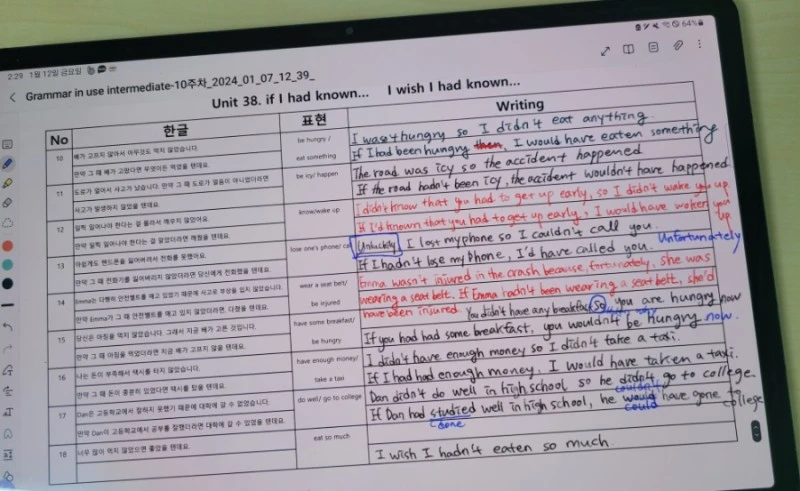 2:29 1월 12일 금요일
64%
Grammar in use intermediate-10주차_2024_01_07_12_39_
Unit 38. if I had known... I wish I had known...
No 한글 표현 Writing
10 배가 고프지 않아서 아무것도 먹지 않았습니다. be hungry / I wasn't hungry so I didn't eat anything.
만약 그 때 배가 고팠다면 무엇이든 먹었을 텐데요. eat something If I had been hungry then, I would have eaten something
11 도로가 얼어서 사고가 났습니다. 만약 그 때 도로가 얼음이 아니었다라면 be icy/ happen The road was icy so the accident happened
사고가 발생하지 않았을 텐데요. If the road hadn't been icy, the accident wouldn't have happened
12 일찍 일어나야 한다는 걸 몰라서 깨우지 않았어요. know/wake up I didn't know that you had to get up early, so I didn't wake you up
만약 일찍 일어나야 한다는 걸 알았더라면 깨웠을 텐데요. If I'd known that you had to get up early, I would have woken you up
13 아쉽게도 핸드폰을 잃어버려서 전화를 못했어요. lose one's phone/ Unluckily I lost my phone so I couldn't call you.
만약 그 때 전화기를 잃어버리지 않았더라면 당신에게 전화했을 텐데요. If I hadn't lose my phone, I'd have called you. Unfortunately
14 Emma는 다행히 안전벨트를 매고 있었기 때문에 사고로 부상을 입지 않았습니다. wear a seat belt/ Emma wasn't injured in the crash because, fortunately, she was
만약 Emma가 그 때 안전벨트를 매고 있지 않았더라면, 다쳤을 텐데요. be injured wearing a seat belt. If Emma hadn't been wearing a seat belt, she'd
have been injured.
15 당신은 아침을 먹지 않았습니다. 그래서 지금 배가 고픈 것입니다. have some breakfast/ You didn't have any breakfast so you are hungry now
만약 그 때 아침을 먹었더라면 지금 배가 고프지 않을 텐데요. be hungry If you had had some breakfast, you wouldn't be hungry now.
16 나는 돈이 부족해서 택시를 타지 않았습니다. have enough money/ I didn't have enough money so I didn't take a taxi.
만약 그 때 돈이 충분히 있었다면 택시를 탔을 텐데요. take a taxi If I had had enough money, I would have taken a taxi.
17 Dan은 고등학교에서 잘하지 못했기 때문에 대학에 갈 수 없었습니다. do well/ go to college Dan didn't do well in high school, so he didn't go to college.
couldn't
만약 Dan이 고등학교에서 공부를 잘했더라면 대학에 갈 수 있었을 텐데요. If Dan had studied well in high school, he would have gone to college
done could
18 너무 많이 먹지 않았으면 좋았을 텐데요. eat so much I wish I hadn't eaten so much